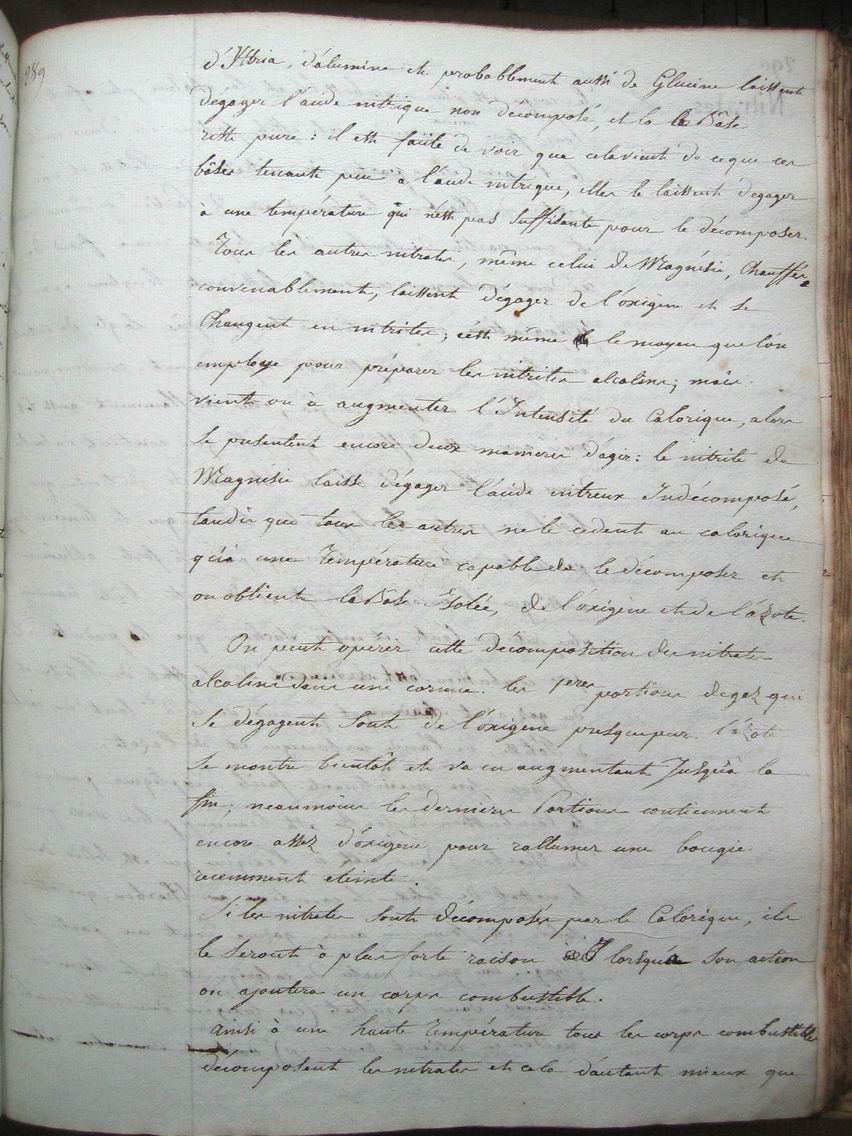 289
d'Ittria, d'alumine et probablement aussi de Glucine laissent
dégager l'acide nitrique non décomposé, et la Bâse
reste pure : il est facile de voir que cela vient de ce que ces
bâses tenante peu a l'acide nitrique, elles le laissent dégager
à une température qui n'est pas suffisante pour le décomposer.
Tous les autres nitrates, même celui de Magnésie, Chauffés
convenablement, laissent dégager de l'oxigène et se
Changent en nitrites ; c'est même le moyen que l'on
employe pour préparer les nitrites alcalins ; mais
vient on à augmenter l'Intensité du Calorique, alors
se présentent encore deux manieres d'agir : le nitrite de
Magnésie laisse dégager l'acide nitreux Indécomposé,
tandis que tous les autres ne le cedent au calorique
qu'à une Température capable de le décomposer et
on obtient la Bâse Isolée, de l'oxigène et de l'azote.
On peut operer cette decomposition des nitrates
alcalins dans une cornue. les 1eres portions de gaz qui
se dégagent sont de l'oxigène presque pur. l'azote
se montre bientôt et va en augmentant Jusqu'à la
fin ; neanmoins les dernières Portions contiennent
encore assez d'oxigène pour rallumer une bougie
recemment eteinte.
Si les nitrates sont décomposés par le Calorique, ils
le seront à plus forte raison lorsqu'a son action
on ajoutera un corps combustible.
ainsi à une haute Température tous les corps combustibles
décomposent les nitrates et cela d'autant mieux que